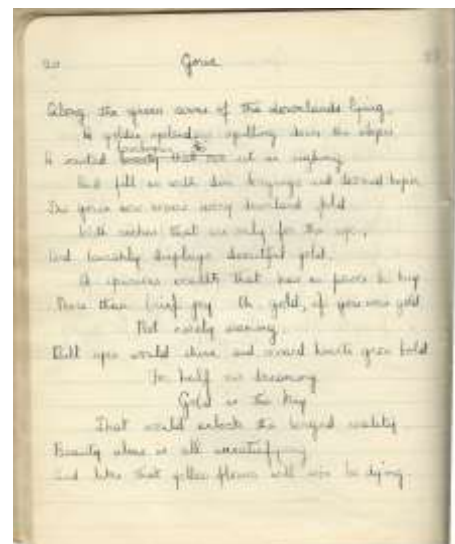 20 Gorse
Along the green curve of the downlands lying
A golden splendour spilling down the slopes
A wasted beauty that
And fill us with dim longings and hopes
The gorse now every downland fold
With riches that are only for the eye,
And lavishly displays deceitful gold.
A spurious wealth that has no power to buy
More than brief joy. Oh gold, if you were gold
Not merely seeming,
Dull eyes would shine and hearts grow bold
In half our dreaming
Gold is the key
That would unlock the longed reality
Beauty alone is all unsatisfying
And like that yellow flower will soon be dying.